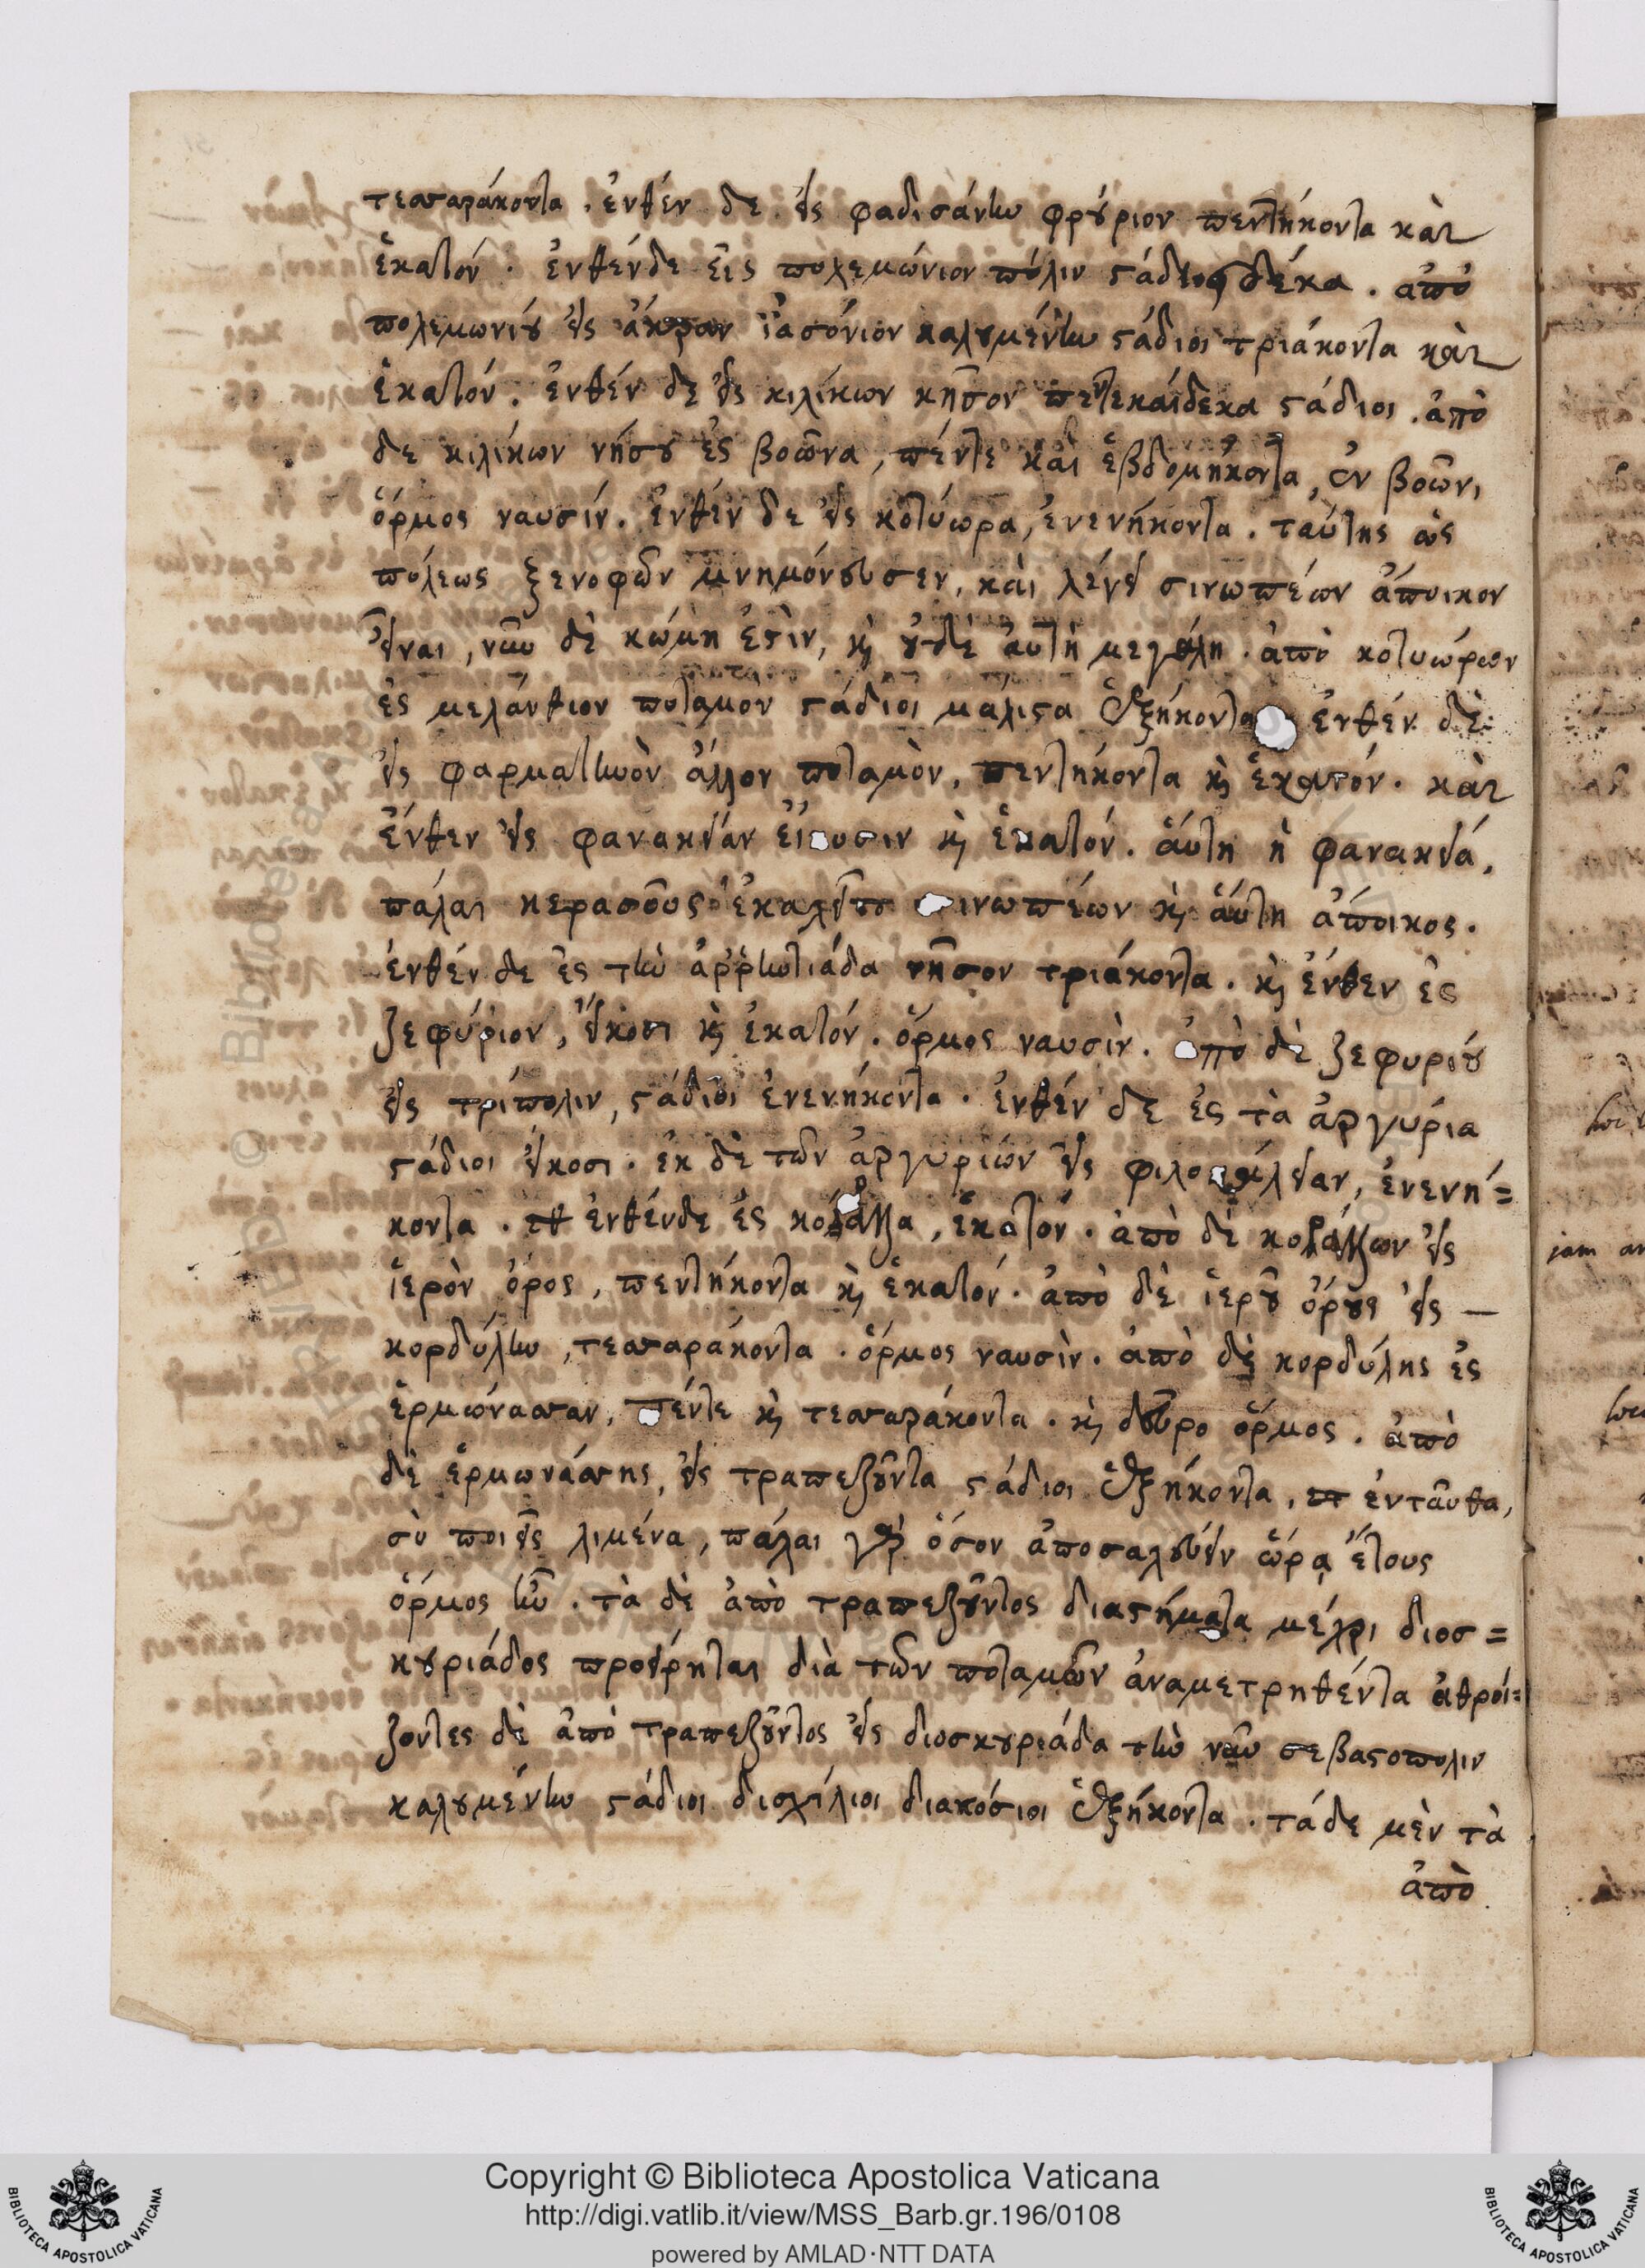 τεσσαράκοντα . ἐνθέν δε εἰς φαδισάνην φρούριον πεντήκοντα καὶ
ἑκατόν . ἐνθένδε εἰς πολεμώνιον πόλιν στάδιοι δέκα . ἀπὸ
πολεμωνίου εἰς ἄκραν ἰασόνιον καλουμένην στάδιοι τριάκοντα καὶ
ἑκατόν . ἐνθέν δε εἰς κιλίκων νῆσον πεντεκαίδεκα στάδιοι . ἀπὸ
δε κιλίκων νήσου ἐς βοῶνα, πέντε καὶ ἑβδομήκοντα, ἐν βοῶνι
ὅρμος ναυσίν . ἐνθέν δε εἰς κοτύωρα, ἐνενήκοντα . ταύτης ὡς
πόλεως ξενοφῶν μνημόνευσεν, καὶ λέγει σινωπέων ἄποικον
εἶναι, νῦν δὲ κώμη ἐστὶν, καὶ οὐδὲ αὐτὴ μεγάλη . ἀπὸ κοτυώρων
ἐς μελάνθιον ποταμὸν στάδιοι μάλιστα ἑξήκοντα ἐνθέν δὲ
εἰς φαρματηνὸν ἄλλον ποταμὸν, πεντήκοντα καὶ ἑκατόν . καὶ
ἔνθεν εἰς φανακείαν εἴκοσιν καὶ ἑκατόν . αὕτη ἡ φανακεία,
πάλαι κερασοῦς ἐκαλεῖτο σινωπέων καὶ αὕτη ἄποικος .
ἐνθέν δε ἐς τὴν ἀρρητιάδα νῆσον τριάκοντα . καὶ ἔνθεν ἐς
ζεφύριον, εἴκοσι καὶ ἑκατόν . ὅρμος ναυσὶν . ἀπὸ δὲ ζεφυρίου
εἰς τρίπολιν, στάδιοι ἐνενήκοντα . ἐνθέν δε ἐς τὰ ἀργύρια
στάδιοι εἴκοσι . ἐκ δὲ τῶν ἀργυρίων εἰς φιλοκάλειαν, ἐνενή=
κοντα . ἐνθένδε ἐς κόραλλα, ἑκατόν . ἀπὸ δὲ κοράλλων εἰς
ἱερὸν ὄρος, πεντήκοντα καὶ ἑκατόν . ἀπὸ δὲ ἱεροῦ ὄρους εἰς –
κορδύλην, τεσσαράκοντα . ὅρμος ναυσὶν . ἀπὸ δὲ κορδύλης ἐς
ἑρμώνασσαν, πέντε καὶ τεσσαράκοντα . καὶ δεῦρο ὅρμος . ἀπὸ
δὲ ἑρμωνάσσης, εἰς τραπεζοῦντα στάδιοι ἑξήκοντα, ἐνταῦθα,
σὺ ποιεῖς λιμένα, πάλαι γὰρ ὅσον ἀποσαλεύειν ὥρᾳ ἔτους
ὅρμος ἦν . τὰ δὲ ἀπὸ τραπεζοῦντος διαστήματα μέχρι διοσ=
κουριάδος προείρηται διὰ τῶν ποταμῶν ἀναμετρηθέντα ἀθροί=
ζοντες δὲ ἀπὸ τραπεζοῦντος εἰς διοσκουριάδα τὴν νῦν σεβαστοπολιν
καλουμένην στάδιοι δισχίλιοι διακόσιοι ἑξήκοντα . τάδε μὲν τὰ
ἀπὸ
Copyright © Biblioteca Apostolica Vaticana
http://digi.vatlib.it/view/MSS_Barb.gr.196/0108
powered by AMLAD·NTT DATA
BIBLIOTECA APOSTOLICA VATICANA
BIBLIOTECA APOSTOLICA VATICANA